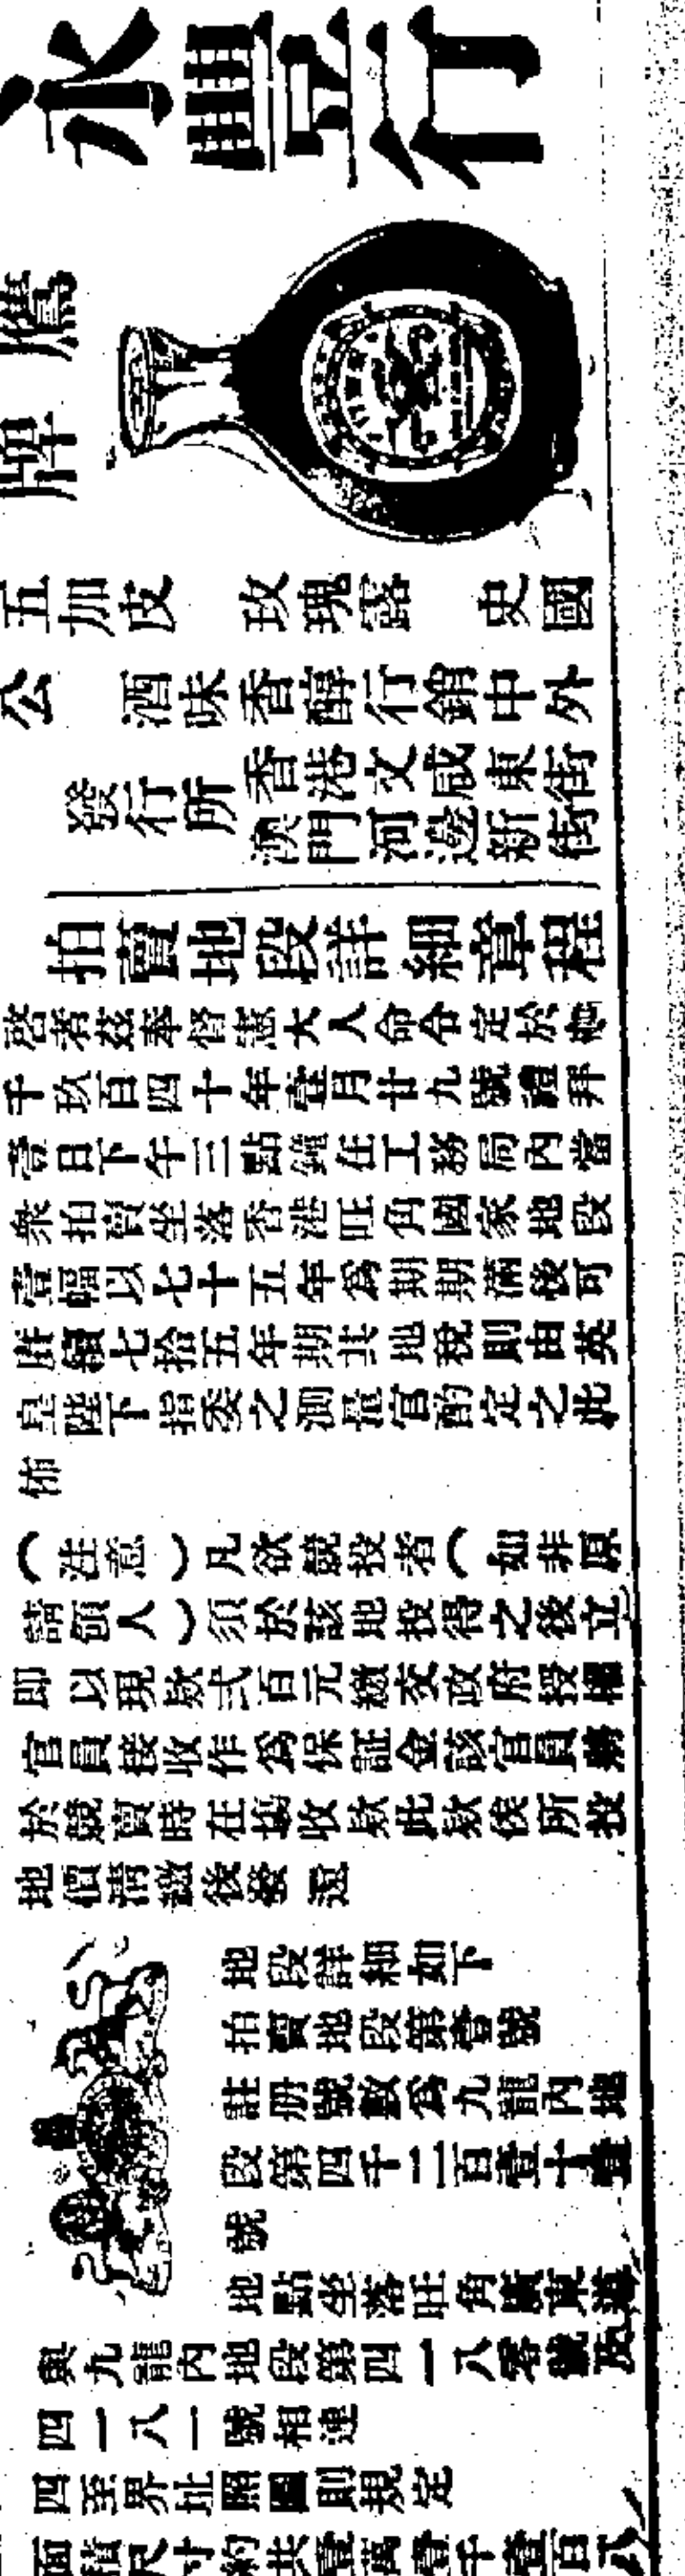 永豐行
鷹
牌
五加皮 玫瑰露 史國
公 酒味香醇行銷中外
發行所
香港文咸東街
澳門河邊新街
拍賣地段詳細章程
啓者茲奉督憲大人命令定於壹
千玖百四十年壹月廿九號禮拜
壹日下午三點鐘在工務局內當
衆拍賣坐落香港旺角國家地段
壹幅以七十五年為期期滿後可
再續七拾五年期其地稅則由英
皇陛下指委之測量官酌定之此
佈
(注意)凡欲競投者(如非原
請領人)須於該地投得之後立
即以現欵弍百元繳交政府授權
官員接收作為保証金該官員將
於競賣時在塲收欵此欵俟所投
地價清繳後發還
地段詳細如下
拍賣地段第壹號
註册號數為九龍內地
段第四千二百壹十壹
號
地點坐落旺角廣東道
與九龍內地段第四一八零號及
四一八一號相連
四至界址照圖則規定
面積尺寸約共壹萬壹千壹百八